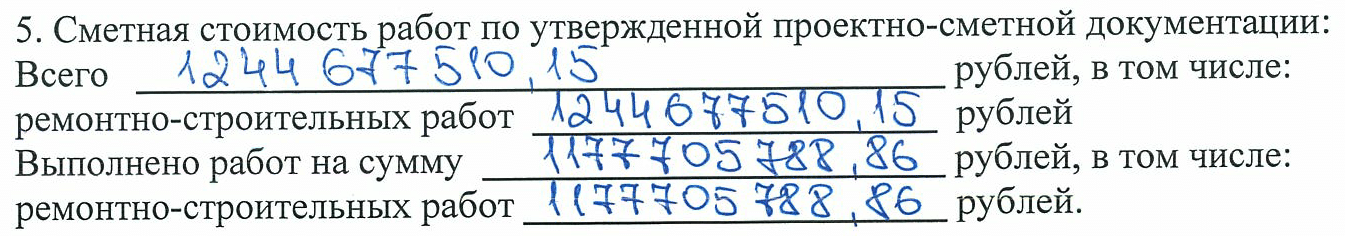 5. Сметная стоимость работ по утвержденной проектно-сметной документации:
Всего 1244 677 510,15 рублей, в том числе:
ремонтно-строительных работ 1244677510,15 рублей
Выполнено работ на сумму 1177705788,86 рублей, в том числе:
ремонтно-строительных работ 1177705788,86 рублей.